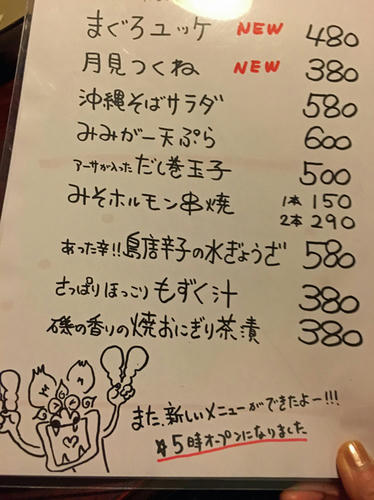 まぐろユッケ NEW 480
月見つくね NEW 380
沖縄そばサラダ 580
みみがー天ぷら 600
アーサが入っただし巻玉子 500
みそホルモン串焼 1本 150
2本 290
あった辛!!島唐辛子の水ぎょうざ 580
さっぱりほっこりもずく汁 380
磯の香りの焼おにぎり茶漬 380
また、新しいメニューができたよー!!!
5時オープンになりました